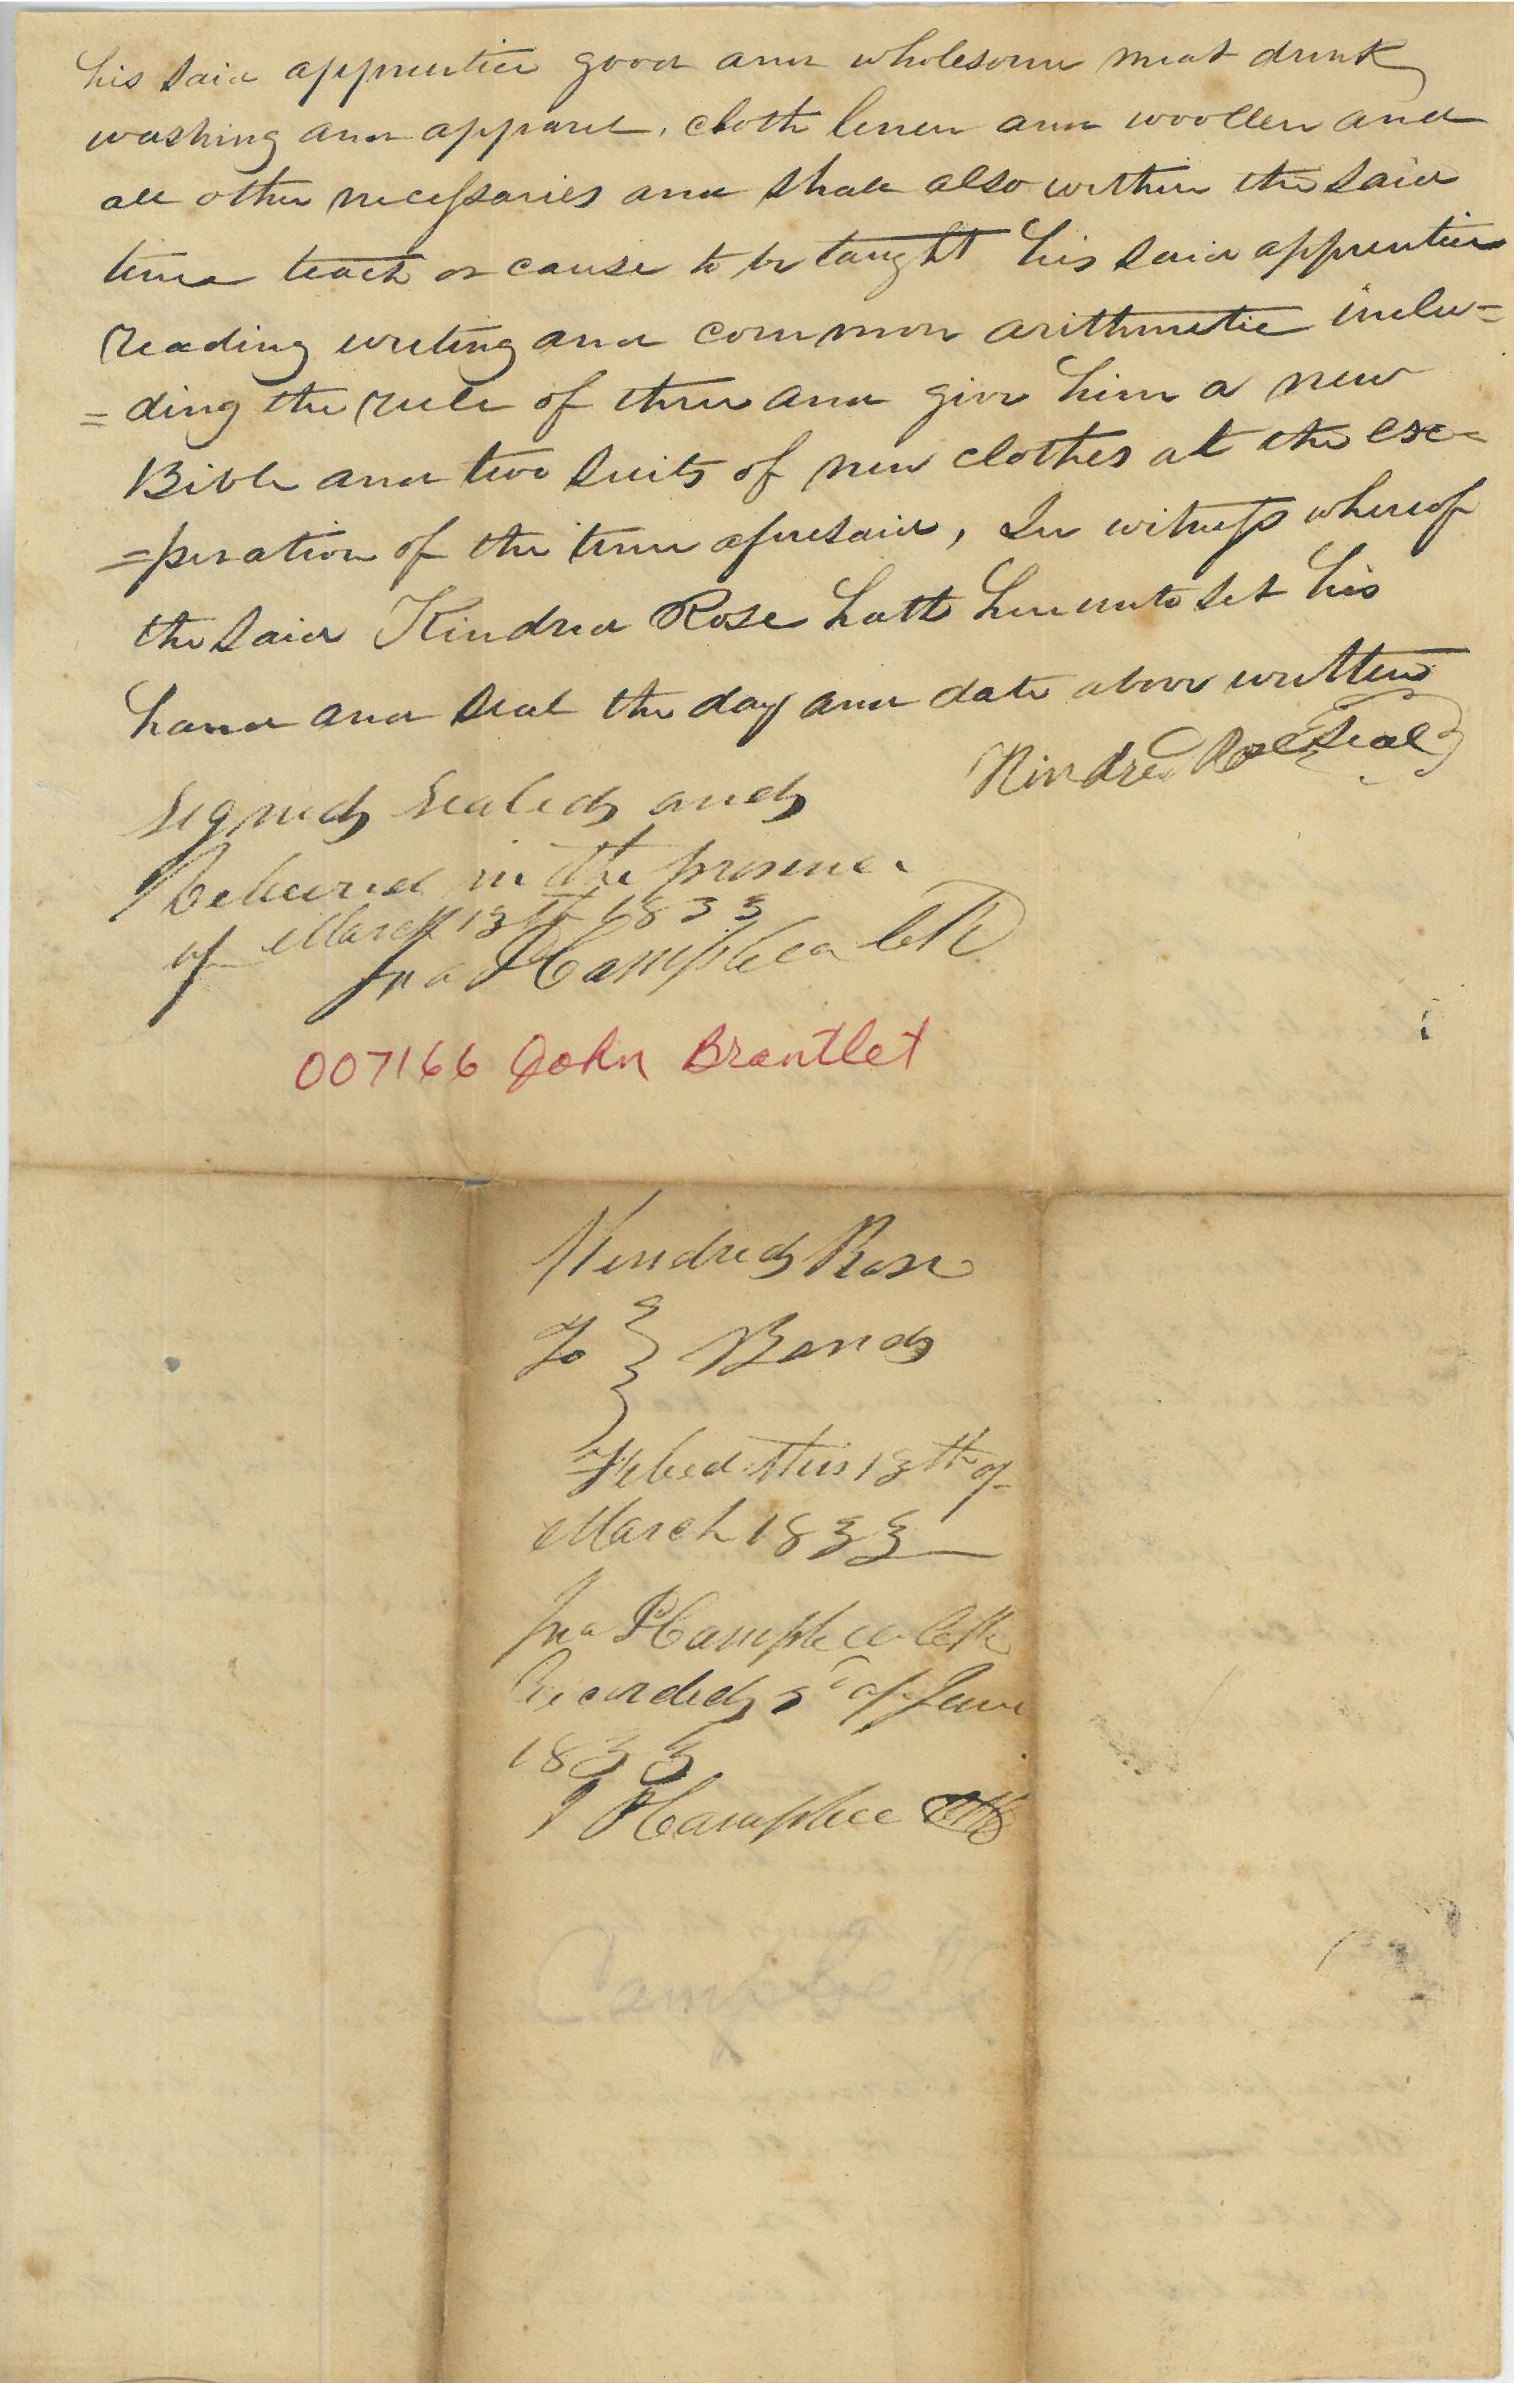 his said apprentice good and wholesome meat drink
washing and apparel, cloth linen and woollen and
all other necessaries and shall also within the said
time teach or cause to be taught his said apprentice
reading writing and common arithmetic inclu=
=ding the rule of three and give him a new
Bible and two suits of new clothes at the ex=
=piration of the time aforesaid, In witness whereof
the said Kindred Rose hath hereunto set his
hand and seal the day and date above written
Kindred Rose Seal
Signed Sealed and
Delivered in the presence
of March 13th 1833
Jno Hamplea Clk
007166 John Brantlet
Kindred Rose
To } Bond
Filed this 13th of
March 1833
Jno Hamplea Clk
Recorded 3d of June
1833
J Hamplea Clk